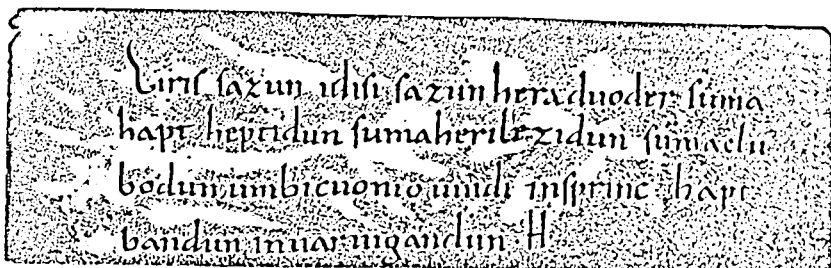 Eiris sazun idisi sazun hera duoder suma
hapt heptidun sumaherilezidun sumaclu
bodun umbicuonio uuidi insprinc hapt
bandun inuar uigandun · H